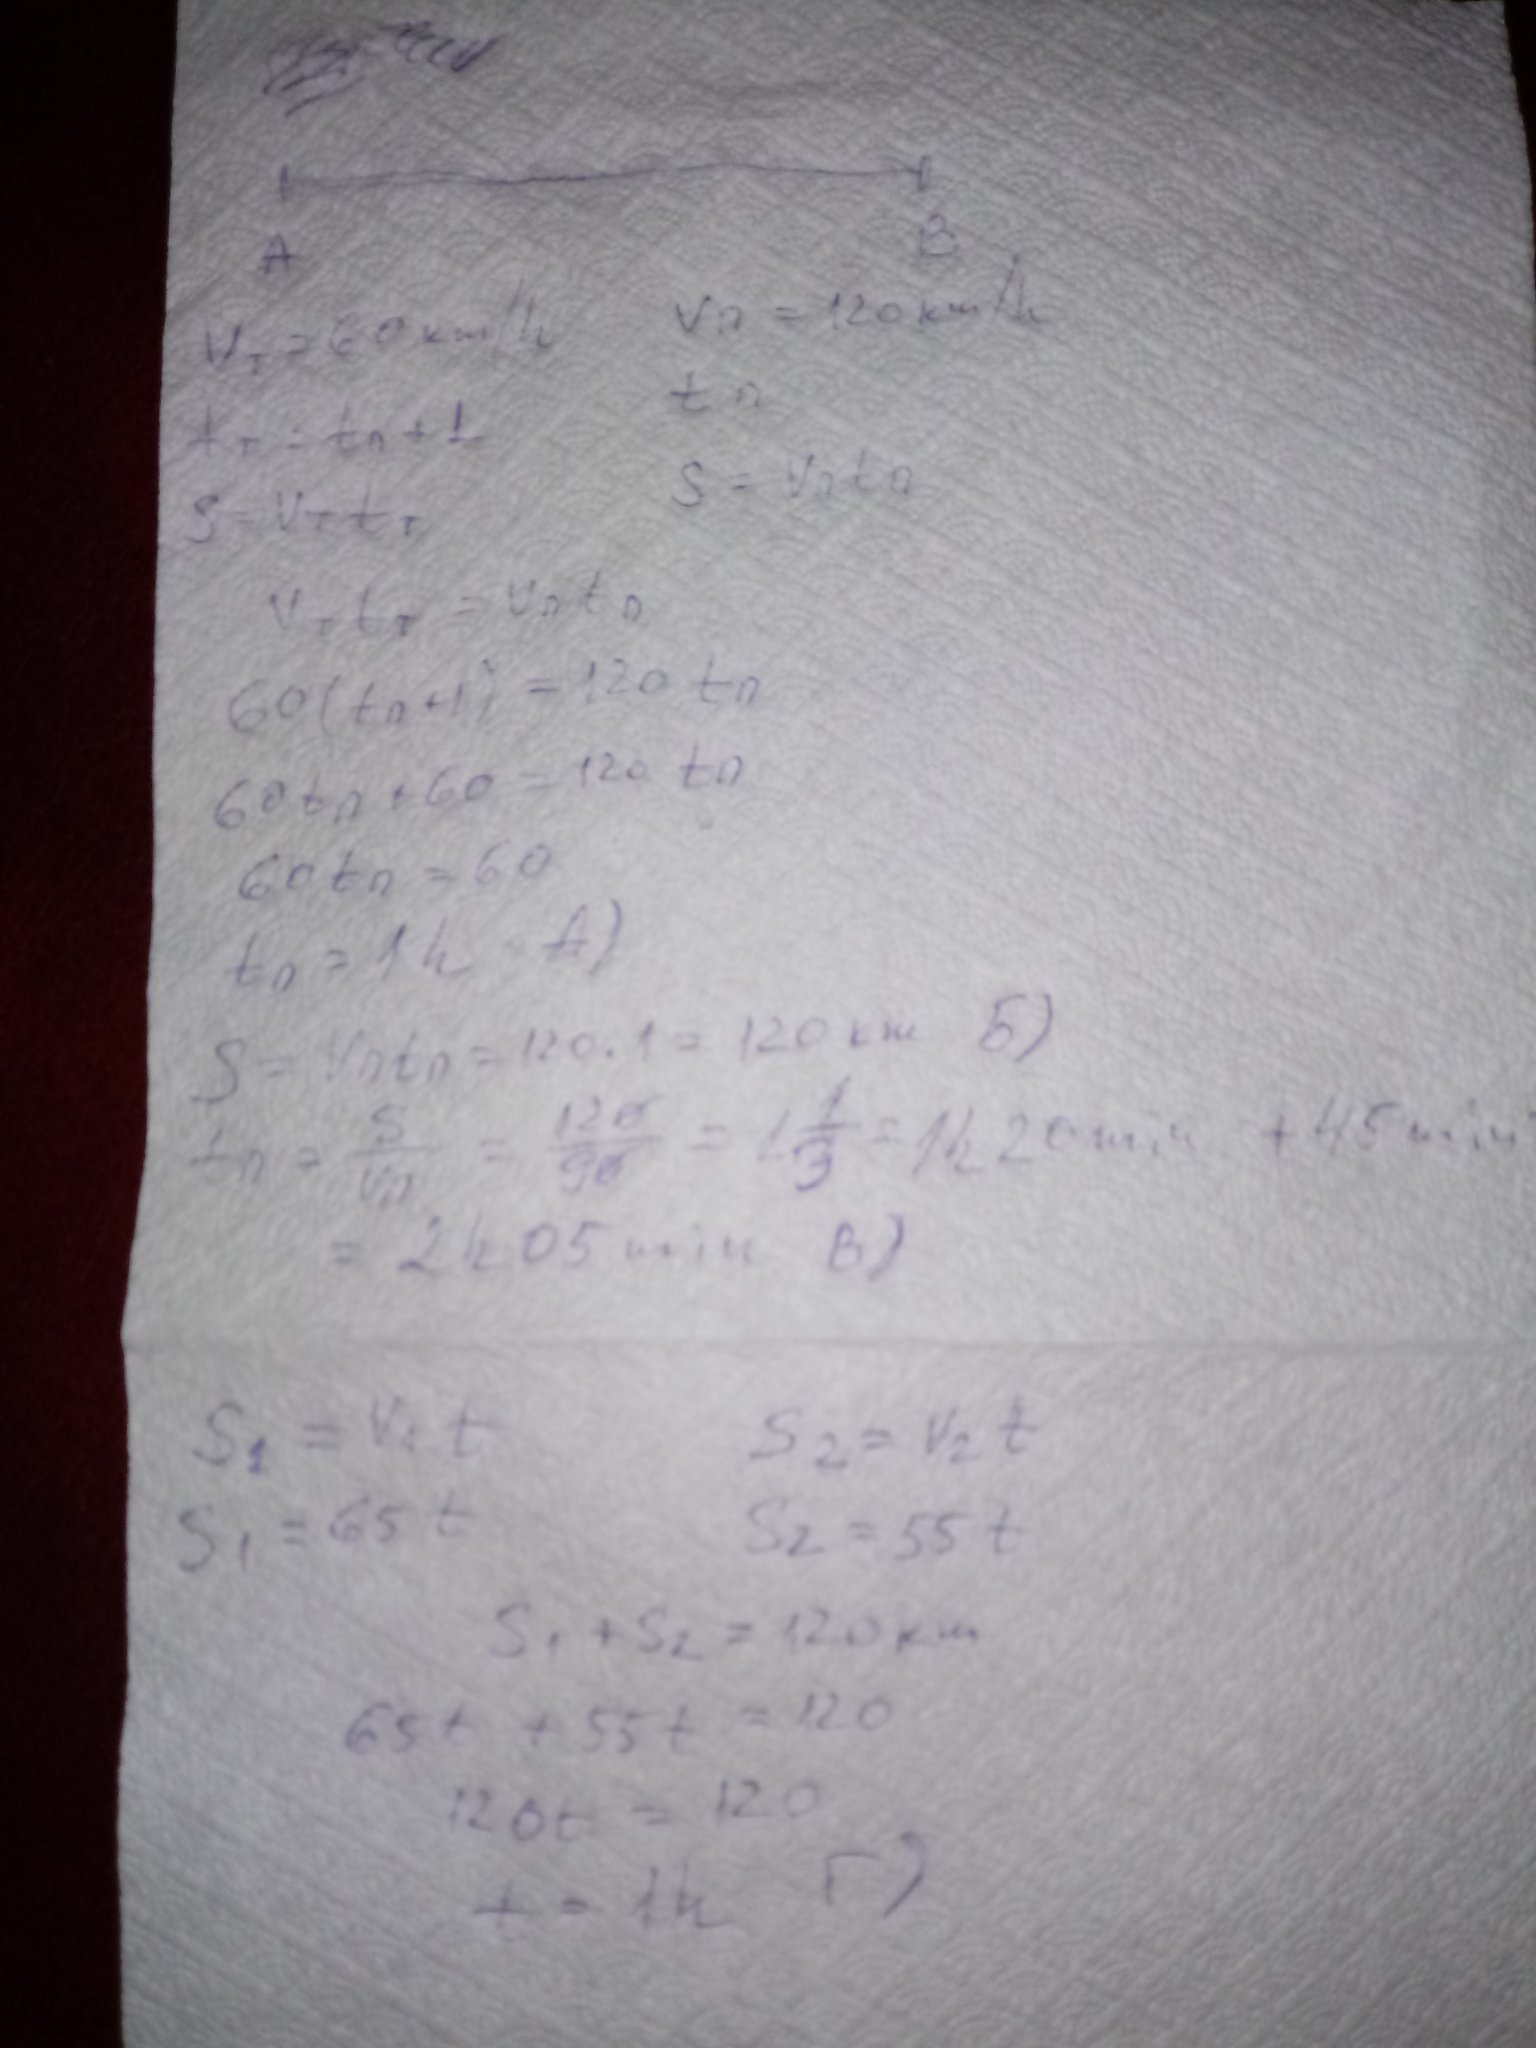 A B
Vт = 60 km/h Vп = 120 km/h
tт = tп + 1 tп
S = Vт tт S = Vп tп
Vт tт = Vп tп
60(tп+1) = 120 tп
60tп + 60 = 120 tп
60tп = 60
tп = 1h А)
S = Vп tп = 120.1 = 120 km Б)
tп = S/Vп = 120/90 = 1 1/3 = 1h 20 min + 45 min
= 2h 05 min В)
S1 = V1 t S2 = V2 t
S1 = 65 t S2 = 55 t
S1 + S2 = 120 km
65t + 55t = 120
120t = 120
t = 1h Г)